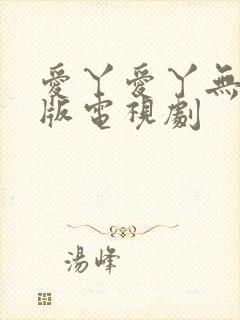 愛丫愛丫無
版電視劇
湯峰